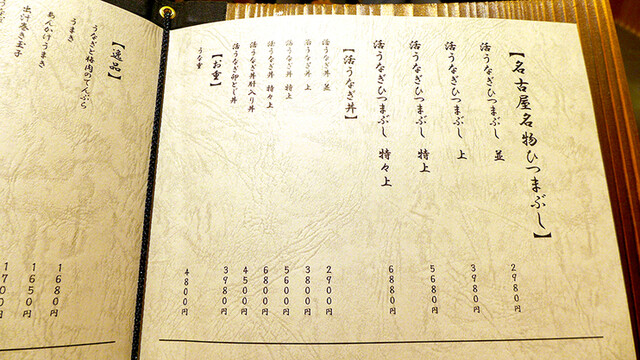 【名古屋名物ひつまぶし】
活うなぎひつまぶし 並 2980円
活うなぎひつまぶし 上 3980円
活うなぎひつまぶし 特上 5680円
活うなぎひつまぶし 特々上 6880円
【活うなぎ丼】
活うなぎ丼 並 2900円
活うなぎ丼 上 3800円
活うなぎ丼 特上 5600円
活うなぎ丼 特々上 6800円
活うなぎ丼肝入り丼 4500円
活うなぎ卵とじ丼 3980円
【お重】
うな重 4800円
【逸品】
うなぎと梅肉のてんぷら
うまき 1680円
あんかけうまき 1650円
出汁巻き玉子